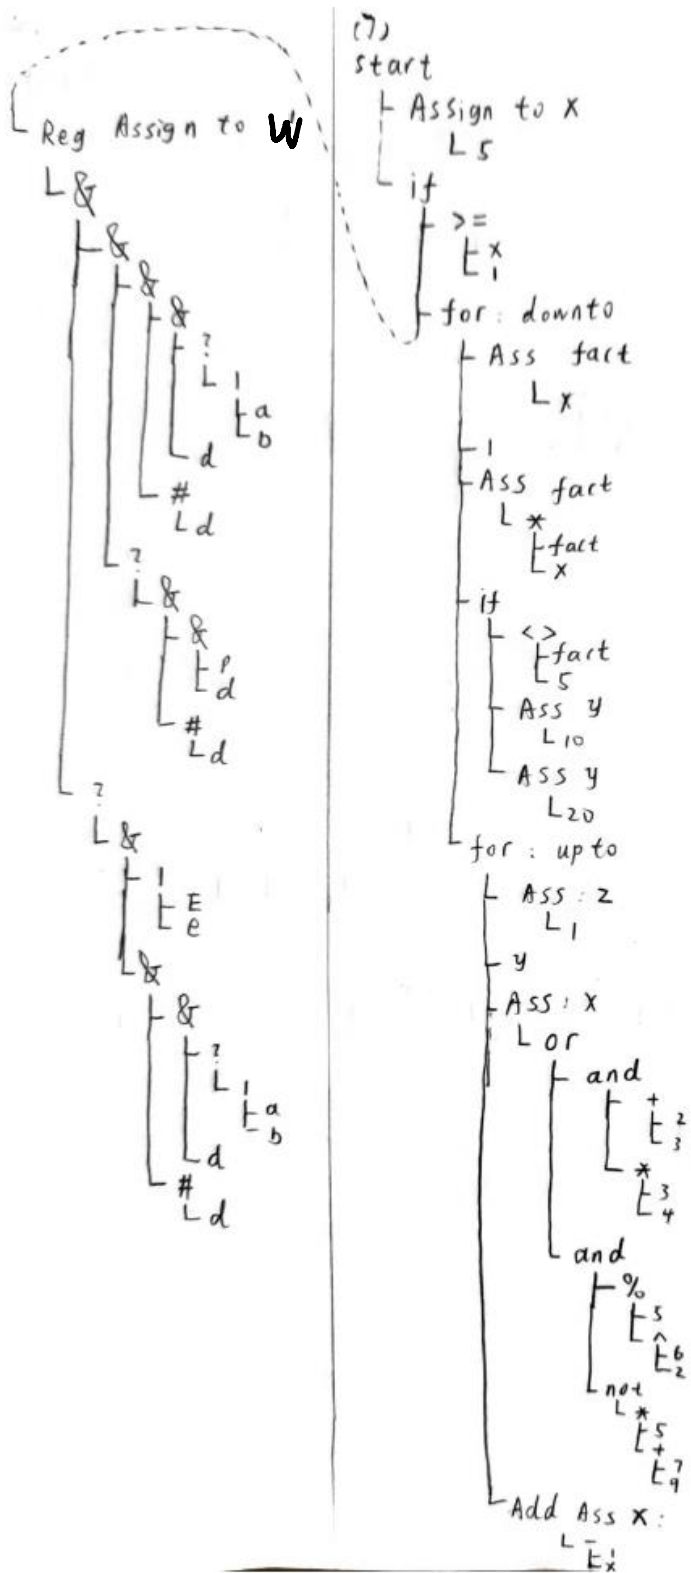 Reg Assign to W
&
&
&
&
?
|
a
b
d
#
d
?
&
&
P
d
#
d
?
&
|
E
e
&
&
?
|
a
b
d
#
d
(7)
start
Assign to x
5
if
>=
x
1
for : downto
Ass fact
x
1
Ass fact
*
fact
x
if
<>
fact
5
Ass y
10
Ass y
20
for : up to
Ass : z
1
y
Ass : x
or
and
+
2
3
*
3
4
and
%
5
^
6
2
not
*
5
+
7
9
Add Ass x :
-
1
x